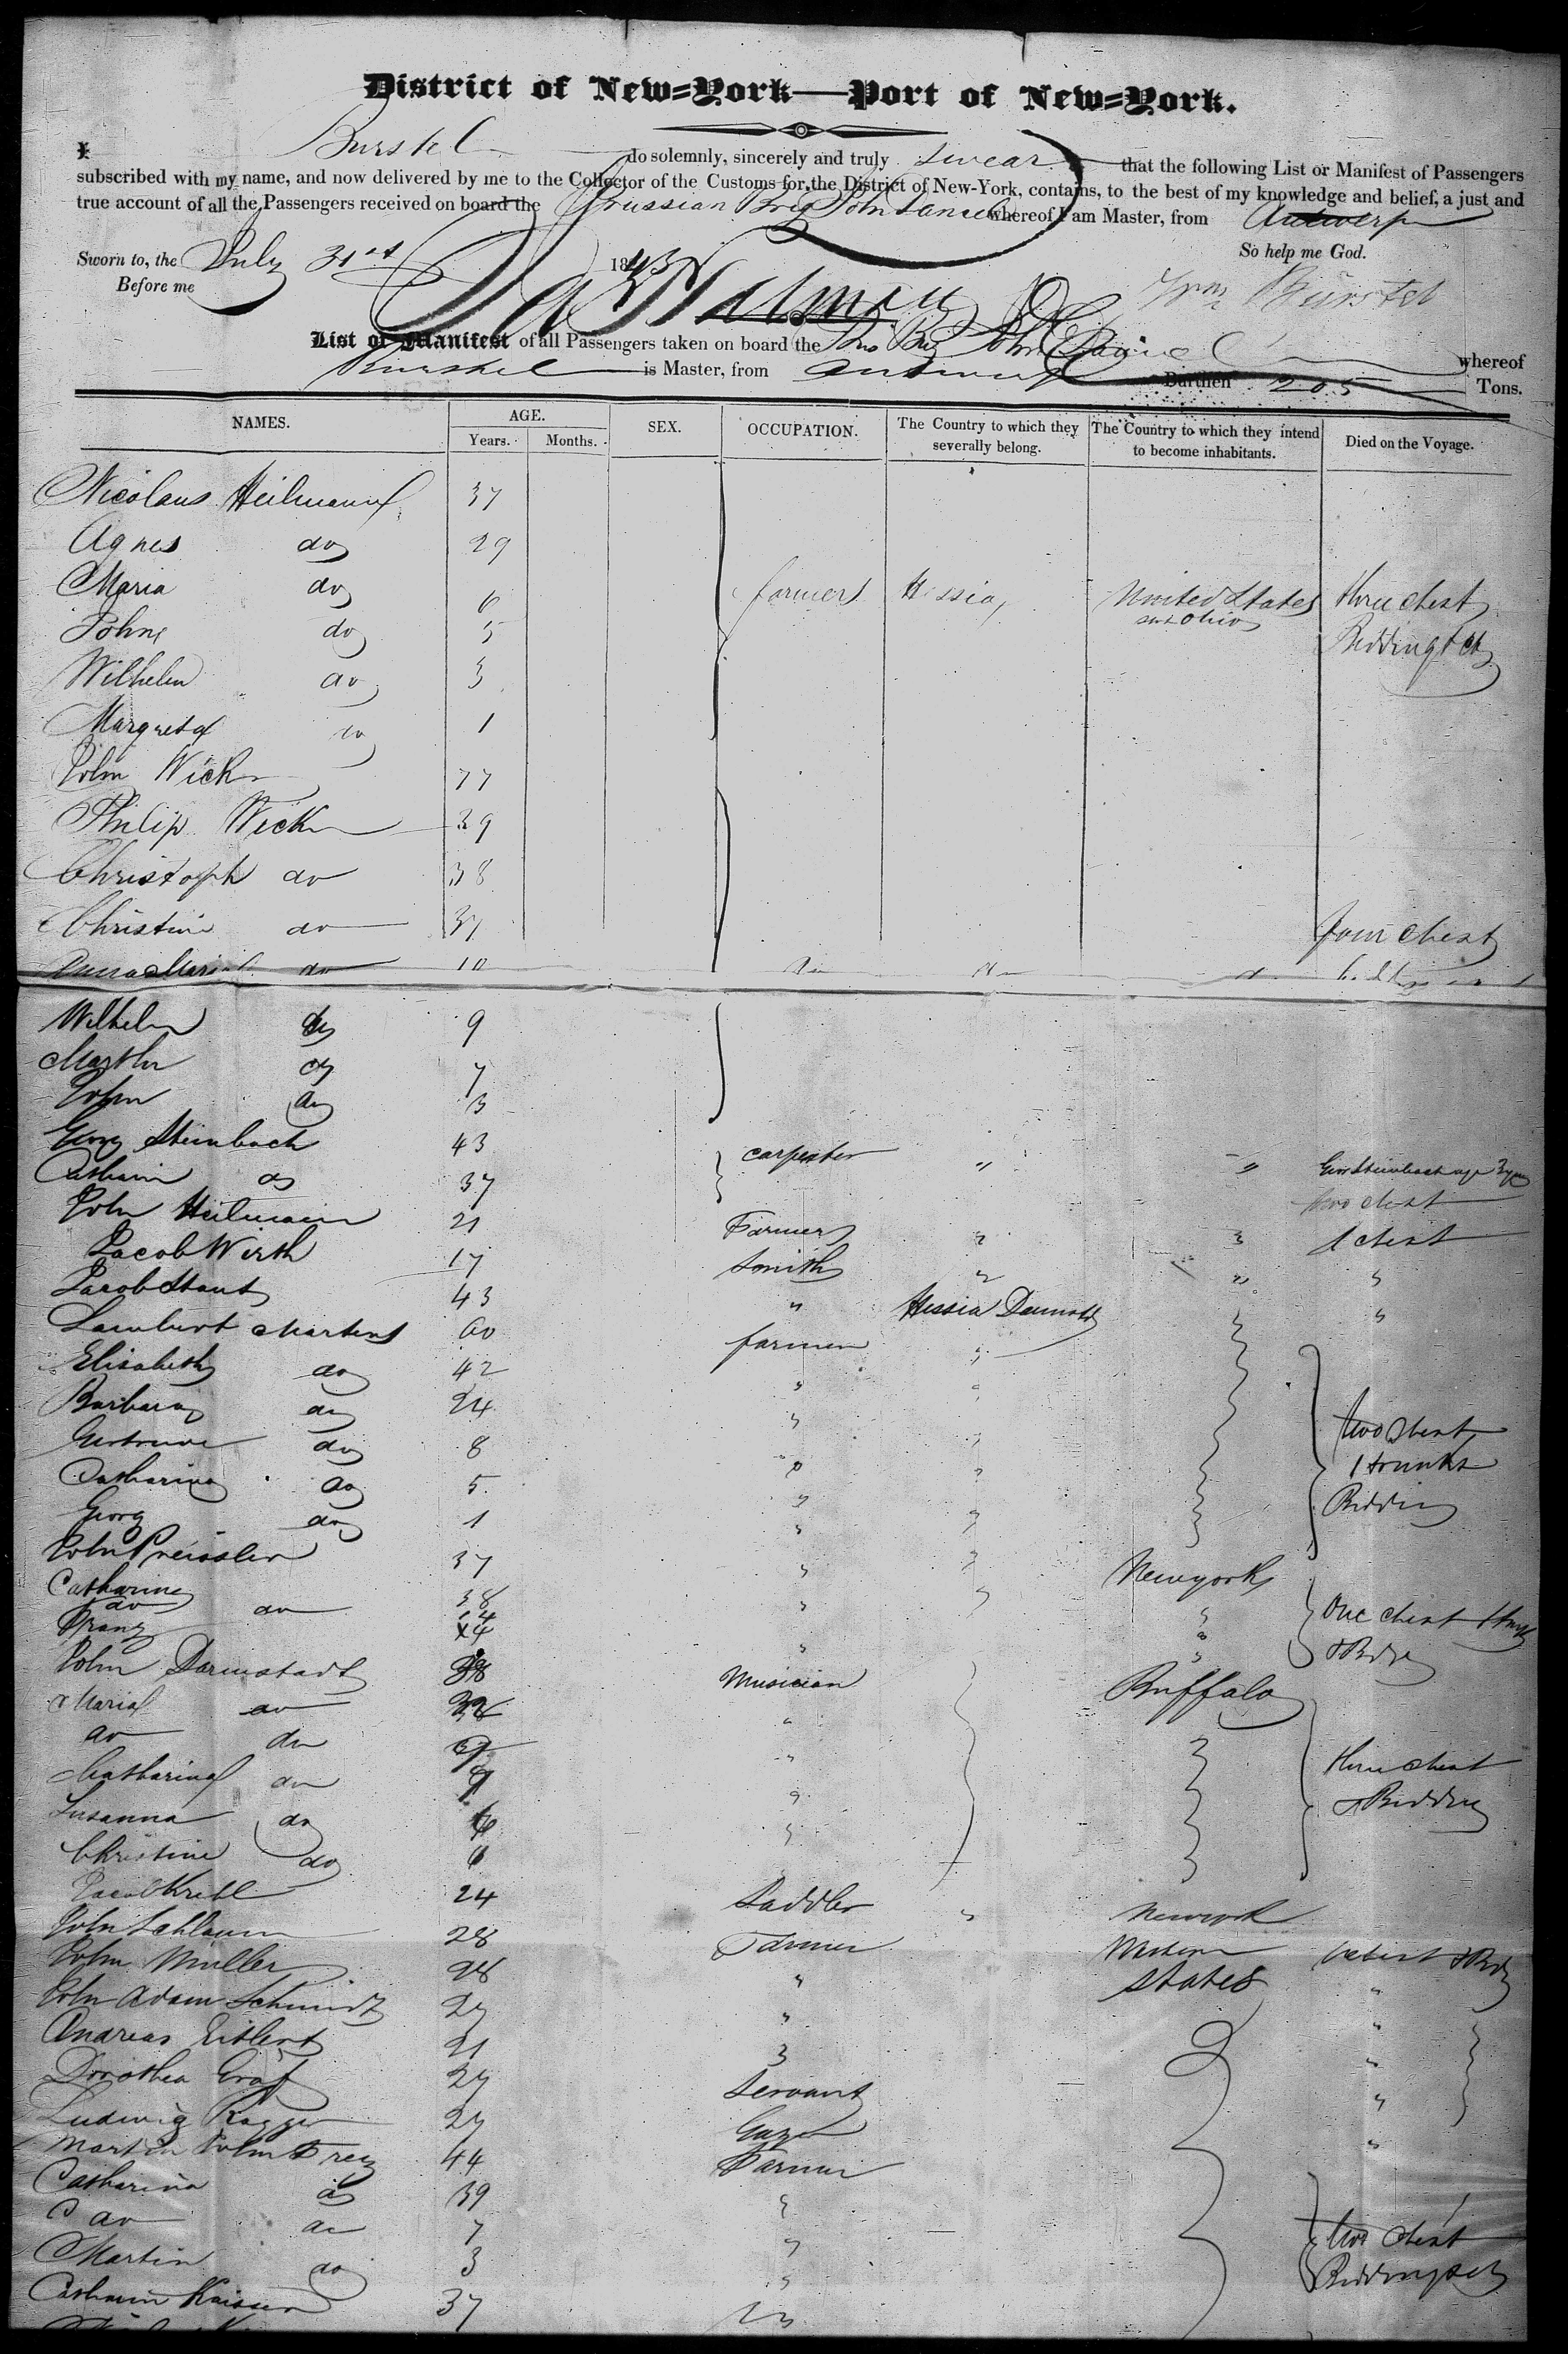 District of New=York—Port of New=York.
I Burstel do solemnly, sincerely and truly swear that the following List or Manifest of Passengers
subscribed with my name, and now delivered by me to the Collector of the Customs for the District of New-York, contains, to the best of my knowledge and belief, a just and
true account of all the Passengers received on board the Prussian Brig John whereof I am Master, from Antwerp
So help me God.
Sworn to, the July 31st 1843
Before me
Wm Burstel
List or Manifest of all Passengers taken on board the Brig John whereof
Burstel is Master, from Antwerp Burthen 205 Tons.
NAMES. AGE. SEX. OCCUPATION. The Country to which they severally belong. The Country to which they intend to become inhabitants. Died on the Voyage.
Years. Months.
Nicolaus Heilmann 37
Agnes do 29
Maria do 6 farmer Hessia United States three chest
John do 5 Ohio Bedding
Wilhelm do 3
Margreta do 1
John Wick 77
Philip Wick 39
Christoph do 38
Christine do 37 four chest
Anna Maria do 10 do do do
Wilhelm do 9
Martha do 7
John do 3
Georg Steinbach 43 carpenter " "
Catharin do 37 two chest
John Heilmann 21 Farmer " " 1 chest
Jacob Wirth 17 Smith " " "
Jacob Staut 43 " Hessia " "
Lambert Martens 60 farmer "
Elisabeth do 42 " "
Barbara do 24 " two chest
Gertrude do 8 " " 1 trunk
Catharina do 5 " "
Georg do 1 " " Bedding
John Preissler 37 " " Newyork
Catharine do 38 " " " One chest
do
Franz 14 " "
John Darmstadt 38 Musician Buffalo
Maria do "
do do "
Catharina do 9 " three chest
Susanna do " & Bedding
Christine do
Jacob 24 Saddler " Newyork
John 28 Farmer Western
John Muller 28 " States "
John Adam Schmidt 27 " "
Andreas 21 " "
Dorothea Graf 27 Servant "
Ludwig 27 "
Martin John 44 Farmer
Catharina do 39 "
do do 7 " two chest
Martin do 3 " Bedding
Catharin Kaiser 37 "